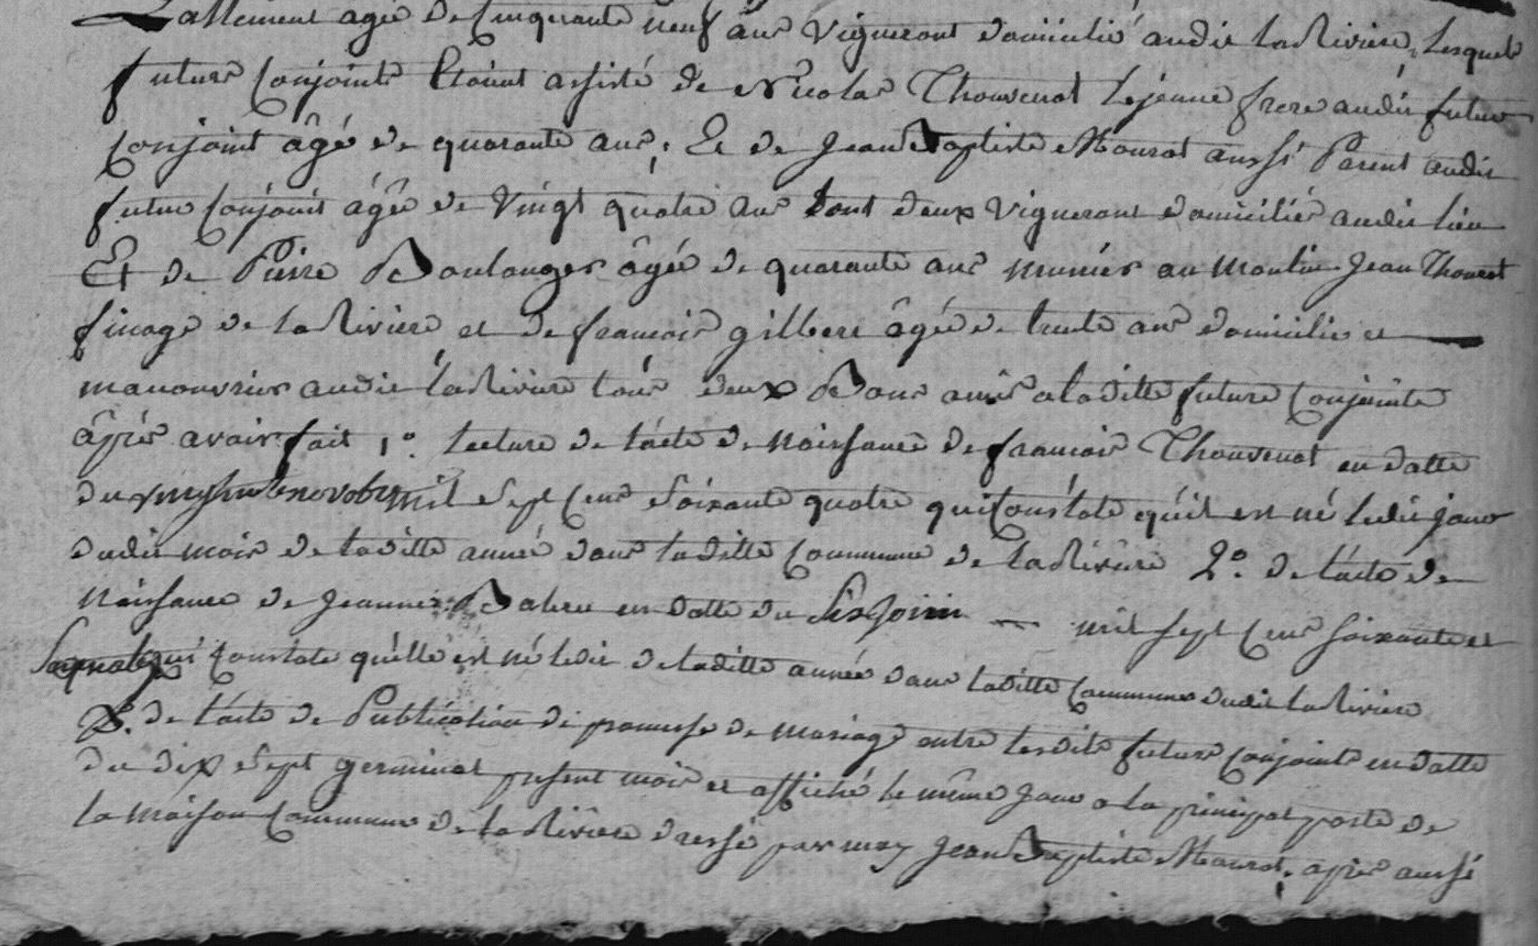 Lallement agée de Cinquante neuf ans vigneront domicilié audit la Riviere, lesquels
futurs conjoints Etoient assisté de Nicolas Thouvenot le jeune frere audit futur
conjoint âgé de quarante ans, Et de Jean Baptiste Mourot aussi Parent audit
futur conjoint âgée de Vingt quatre ans tout deux vignerons domiciliés audit lieu
Et de Pierre Boulanger âgée de quarante ans munier au moulin Jean Thouvenot
finage de la Riviere et de francois gilbere âgée de trente ans domicilié et
manouvrier audit la Riviere tous deux Bons amis a laditte future conjointe
âprés avoir fait 1º. lecture de l'acte de naissance de francois Thouvenot en datte
du novobre mil sept cens soixante quatre qui constate qu'il est né ledit jour
dudit mois de laditte année dans laditte commune de la Riviere 2º. de l'acte de
Naissance de Jeanne Balieu en datte du Six Join mil sept cens soixante et
qui constate qu'elle est né ledit de laditte année dans laditte commune dudit la Riviere
3º. de l'acte de Publication de promesse de mariage entre lesdits futurs conjoints en datte
du dix sept germinal present mois et affiché le même jour a la principal porte de
la maison commune de la Riviere dressé par moy Jean Baptiste Mourot, aprés aussi